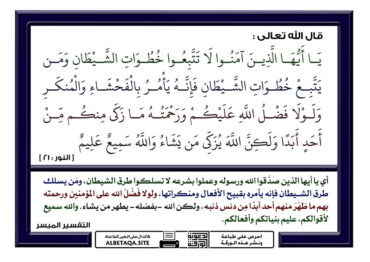 قال الله تعالى :
يَا أَيُّهَا الَّذِينَ آمَنُوا لَا تَتَّبِعُوا خُطُوَاتِ الشَّيْطَانِ وَمَن
يَتَّبِعْ خُطُوَاتِ الشَّيْطَانِ فَإِنَّهُ يَأْمُرُ بِالْفَحْشَاءِ وَالْمُنكَرِ
وَلَوْلَا فَضْلُ اللَّهِ عَلَيْكُمْ وَرَحْمَتُهُ مَا زَكَىٰ مِنكُم مِّنْ
أَحَدٍ أَبَدًا وَلَكِنَّ اللَّهَ يُزَكِّي مَن يَشَاءُ وَاللَّهُ سَمِيعٌ عَلِيمٌ
[ النور : ٢١ ]
أي يا أيها الذين صدَّقوا الله ورسوله وعملوا بشرعه لا تسلكوا طرق الشيطان، ومَن يسلك
طرق الشيطان فإنه يأمره بقبيح الأفعال ومنكراتها، ولولا فضل الله على المؤمنين ورحمته
بهم ما طهُرَ منهم أحد أبدًا من دنس ذنبه، ولكن الله -بفضله- يطهر من يشاء. والله سميع
لأقوالكم، عليم بنياتكم وأفعالكم.
التفسير الميسر
ALBETAQA.SITE
احرص على طباعة
ونشر هذه الورقة